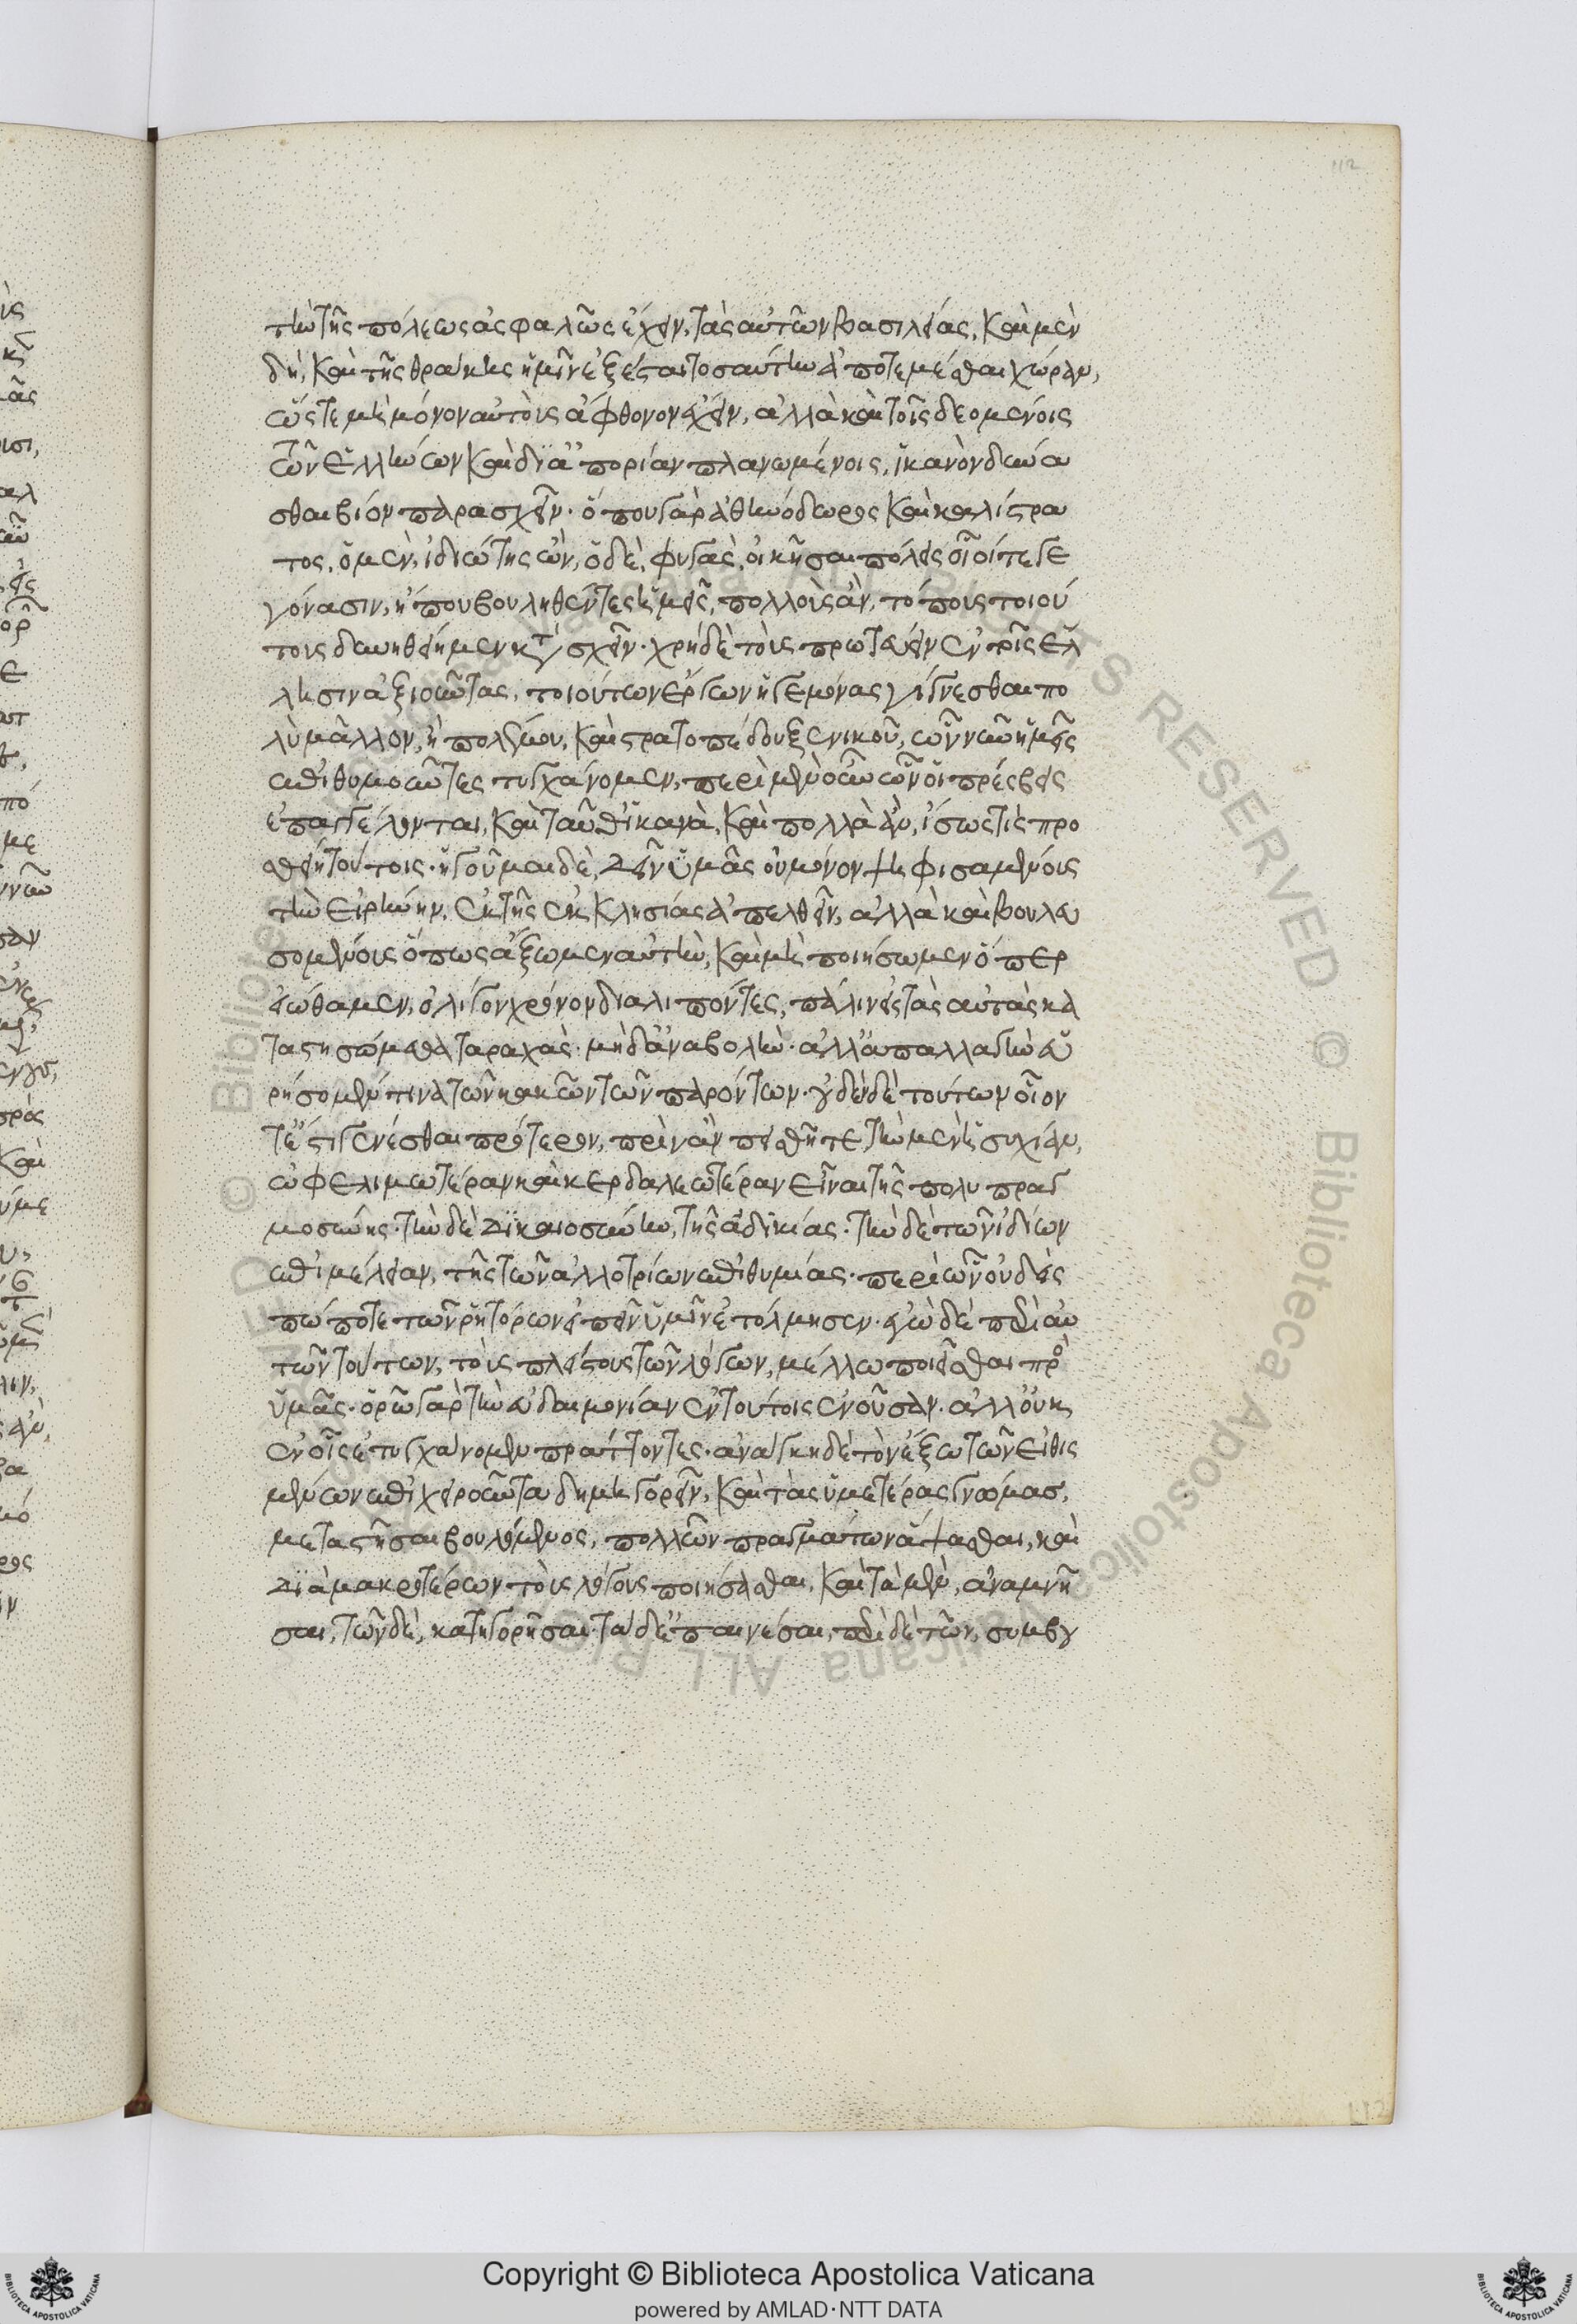 τὴν τῆς πόλεως ἀσφαλῶς ἔχειν, τὰς αὐτῶν βασιλείας. καὶ μὲν
δὴ, καὶ τῆς θράκης ἡμῖν ἐξέσται τοσαύτην ἀποτεμέσθαι χώραν,
ὥστε μὴ μόνον αὐτοὺς ἄφθονον ἔχειν, ἀλλὰ καὶ τοῖς δεομένοις
τῶν ἑλλήνων καὶ δι' ἀπορίαν πλανωμένοις, ἱκανὸν δύνα
σθαι βίον παρασχεῖν. ὅπου γὰρ ἀθηνόδωρος καὶ καλίστρα
τος, ὁ μὲν, ἰδιώτης ὢν, ὁ δὲ, φυγὰς, οἰκῆσαι πόλεις οἷοί τε γε
γόνασιν, ἦ που βουληθέντες ἡμεῖς, πολλοὺς ἂν, τόπους τοιού
τους δυνηθείημεν κατασχεῖν. χρὴ δὲ τοὺς πρωτεύειν ἐν τοῖς ἕλ
λησιν ἀξιοῦντας, τοιούτων ἔργων ἡγεμόνας γίγνεσθαι πο
λὺ μᾶλλον, ἢ πολέμου, καὶ στρατοπέδου ξενικοῦ, ὧν νῦν ἡμεῖς
ἐπιθυμοῦντες τυγχάνομεν. περὶ μὲν οὖν ὧν οἱ πρέσβεις
ἐπαγγέλονται, καὶ ταῦθ' ἱκανὰ, καὶ πολλὰ ἂν, ἴσως τὶς προ
σθείη τούτοις. ἡγοῦμαι δὲ, δεῖν ὑμᾶς οὐ μόνον ψηφισαμένοις
τὴν εἰρήνην, ἐκ τῆς ἐκκλησίας ἀπελθεῖν, ἀλλὰ καὶ βουλευ
σομένοις ὅπως ἄξωμεν αὐτὴν, καὶ μὴ ποιήσωμεν ὅπερ
εἰώθαμεν, ὀλίγον χρόνον διαλιπόντες, πάλιν εἰς τὰς αὐτὰς κα
ταστησώμεθα ταραχάς. μὴ δ' ἀναβολὴν. ἀλλ' ἀπαλλαγὴν εὑ
ρήσομέν τινα τῶν κακῶν τῶν παρόντων. οὐδὲν δὲ τούτων οἷον
τέ ἐστι γενέσθαι πρότερον, πρὶν ἂν πεισθῆτε, τὴν μὲν ἡσυχίαν,
ὠφελιμωτέραν καὶ κερδαλεωτέραν εἶναι τῆς πολυπραγ
μοσύνης. τὴν δὲ δικαιοσύνην, τῆς ἀδικίας. τὴν δὲ τῶν ἰδίων
ἐπιμέλειαν, τῆς τῶν ἀλλοτρίων ἐπιθυμίας. περὶ ὧν οὐδεὶς
πώποτε τῶν ῥητόρων εἰπεῖν ὑμῖν ἐτόλμησεν. ἐγὼ δὲ περὶ αὐ
τῶν τούτων, τοὺς πλείστους τῶν λόγων, μέλλω ποιεῖσθαι πρὸς
ὑμᾶς. ὁρῶ γὰρ τὴν εὐδαιμονίαν ἐν τούτοις ἐνοῦσαν. ἀλλ' οὐκ
ἐν οἷς ἐτυγχάνομεν πράττοντες. ἀνάγκη δὲ τὸν ἔξω τῶν εἰθισ
μένων ἐπιχειροῦντα δημηγορεῖν, καὶ τὰς ὑμετέρας γνώμας,
μεταστῆσαι βουλόμενος, πολλῶν πραγμάτων ἅψασθαι, καὶ
διὰ μακροτέρων τοὺς λόγους ποιήσασθαι, καὶ τὰ μὲν, ἀναμνῆ
σαι, τῶν δὲ, κατηγορῆσαι. τὰ δ' ἐπαινέσαι, περὶ δὲ τῶν, συμβου
112
112
© Biblioteca Apostolica Vaticana ALL RIGHTS RESERVED
Copyright © Biblioteca Apostolica Vaticana
powered by AMLAD·NTT DATA